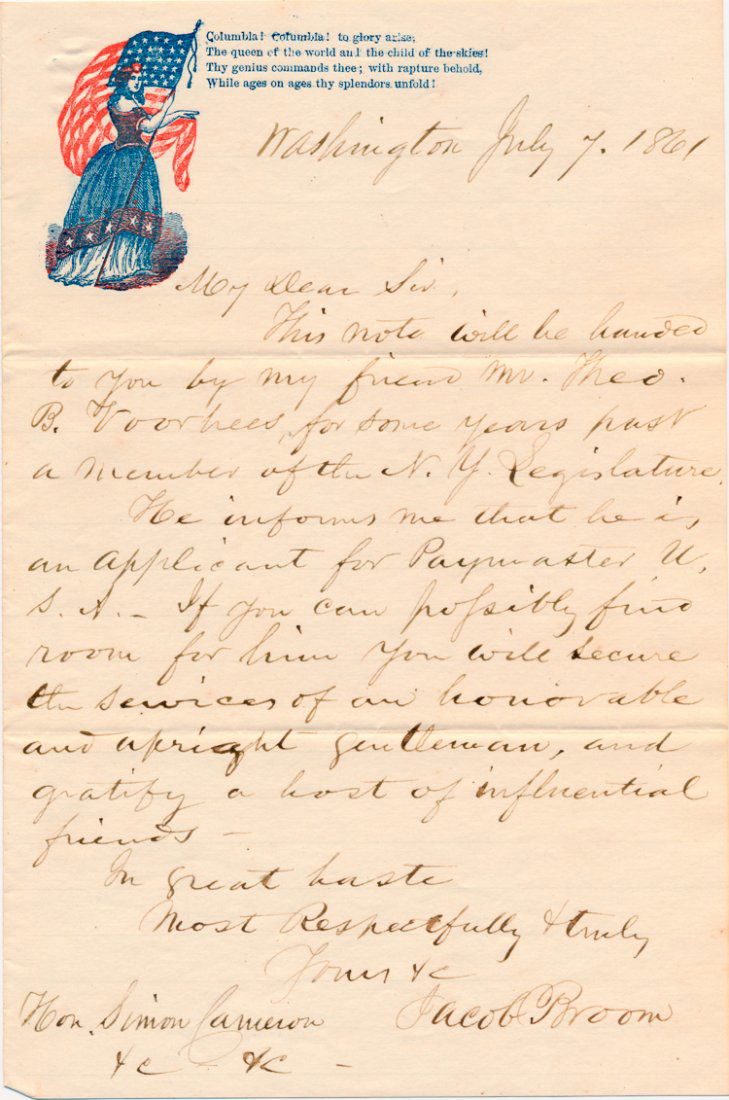 Columbia! Columbia! to glory arise,
The queen of the world and the child of the skies!
Thy genius commands thee; with rapture behold,
While ages on ages thy splendors unfold!
Washington July 7. 1861
My Dear Sir,
This note will be handed
to you by my friend Mr. Theo.
B. Voorhees, for some years past
a member of the N. Y. Legislature.
He informs me that he is
an applicant for Paymaster U.
S. A. — If you can possibly find
room for him you will secure
the services of an honorable
and upright gentleman, and
gratify a host of influential
friends —
In great haste
Most Respectfully & truly
Yours &c
Hon. Simon Cameron
Jacob Broom
&c &c —